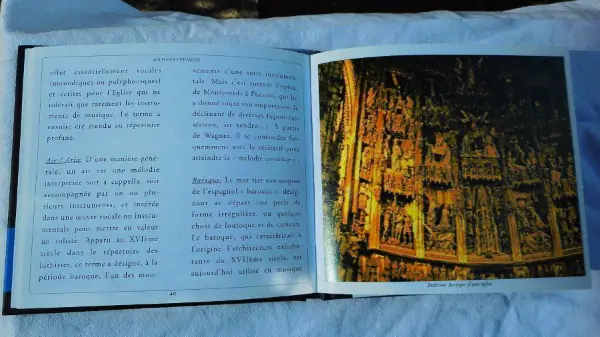 ANTONIO VIVALDI
effet essentiellement vocales
(monodiques ou polyphoniques)
et écrites pour l'Eglise qui ne
tolérait que rarement les instru-
ments de musique. Le terme a
ensuite été étendu au répertoire
profane.
Air / Aria: D'une manière géné-
rale, un air est une mélodie
interprétée soit a cappella, soit
accompagnée par un ou plu-
sieurs instruments, et insérée
dans une œuvre vocale ou instru-
mentale pour mettre en valeur
un soliste. Apparu au XVIème
siècle dans le répertoire des
luthistes, ce terme a désigné, à la
période baroque, l'un des mou-
vements d'une suite instrumen-
tale. Mais c'est surtout l'opéra,
de Monteverdi à Puccini, qui lui
a donné toute son importance, le
déclinant de diverses façons (air
sérieux, air tendre...). A partir
de Wagner, il se confondra fré-
quemment avec le récitatif pour
atteindre la « mélodie continue ».
Baroque: Le mot tire son origine
de l'espagnol « barocco », dési-
gnant au départ une perle de
forme irrégulière, ou quelque
chose de loufoque et de coûteux.
Le baroque, qui caractérisait à
l'origine l'architecture exubé-
rante du XVIIème siècle, est
aujourd'hui utilisé en musique
46
Intérieur baroque d'une église